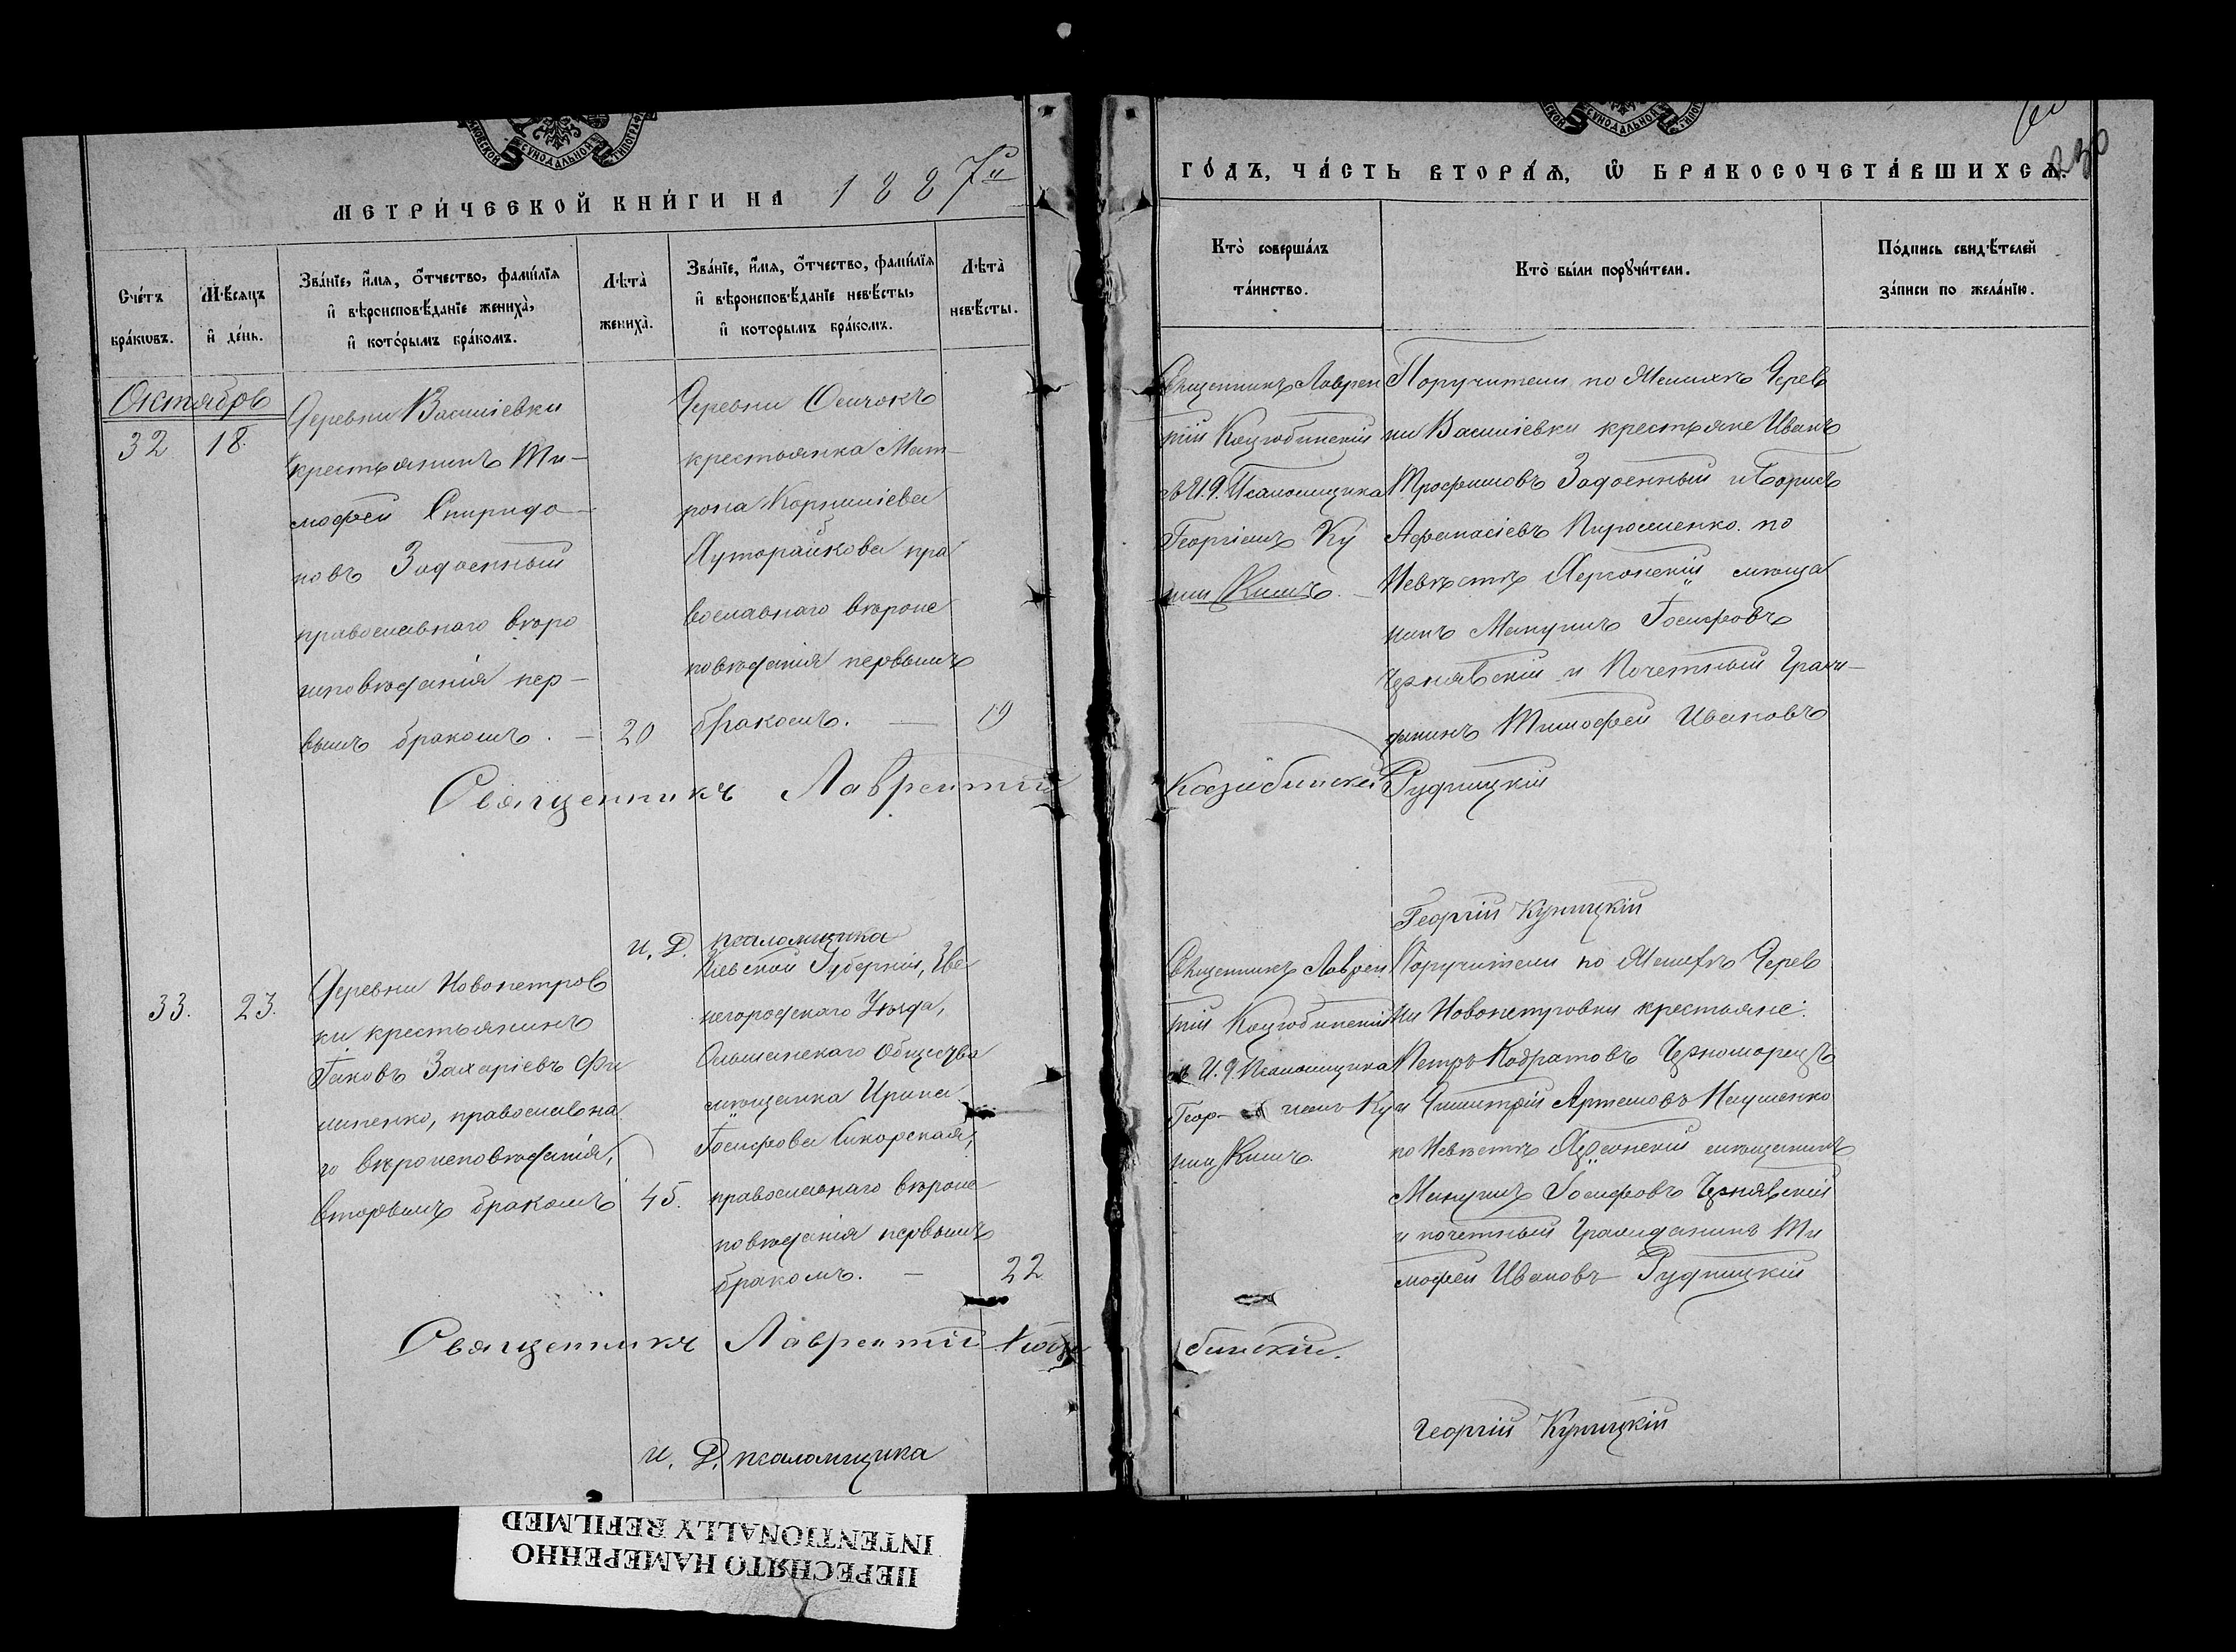 МЕТРИ́ЧЕСКОЙ КНИ́ГИ НА 1887й
ГО́ДЪ, ЧА́СТЬ ВТОРА́Ѧ, Ѿ БРАКОСОЧЕТА́ВШИХСѦ.
230
Счётъ бра́кѡвъ.
Мѣ́сѧцъ и҆ де́нь.
Зва́нїе, и҆́мѧ, ѻ҆́тчество, фамилїѧ
и҆ вѣроисповѣ́данїе жениха̀,
и҆ кото́рымъ бра́комъ.
Лѣта̀ жениха̀.
Зва́нїе, и҆́мѧ, ѻ҆́тчество, фамилїѧ
и҆ вѣроисповѣ́данїе невѣ́сты,
и҆ которымъ бра́комъ.
Лѣта̀ невѣ́сты.
Кто̀ соверша́лъ
та́инство.
Кто̀ бы́ли порꙋчи́тели.
По́дпись свидѣ́телей
за́писи по жела́нїю.
Октябрь
32
18.
Деревни Василіевки
крестьянинъ Ти-
мофей Спиридо-
новъ Задоенный
православнаго вѣро
исповѣданія пер-
вымъ бракомъ. —
20
Деревни Осичокъ
крестьянка Мат-
рона Корниліева
православнаго вѣроис
повѣданія первымъ
бракомъ. —
19
Священникъ Лаврен
тій Коцюбинскій
съ И.Д. Псаломщика
Георгіемъ Ку
ницкимъ. —
Поручители по Женихѣ Дерев
ни Василіевки крестьяне Иванъ
Трофимовъ Задоенный и Борисъ
Афанасіевъ по
Невѣстѣ Херсонскій мѣща
нинъ Іосифовъ
Чернявскій и Почетный Граж-
данинъ Тимофей Ивановъ
Рудницкій
Священникъ Лаврентій Коцюбинскій
и. Д. псаломщика
Георгій Куницкій
33.
23.
Деревни Новопетров
ки крестьянинъ
Іаковъ Захаріевъ Фи
липенко, православна
го вѣроисповѣданія,
вторымъ бракомъ
45.
Кіевской Губерніи, Зве
негородскаго Уѣзда,
Ольшанскаго Общества
мѣщанка Ирина
Іосифова Сикорская,
православнаго вѣроис
повѣданія первымъ
бракомъ. —
22
Священникъ Лаврен
тій Коцюбинскій
съ И.Д. Псаломщика
Геор- гіемъ Ку
ницкимъ.
Поручители по Женихѣ Дерев
ни Новопетровки крестьяне:
Петръ Кодратовъ Черноморецъ
и Димитрій Артемовъ Науменко
по Невѣстѣ Херсонскій мѣщанинъ
Іосифовъ Чернявскій
и почетный Гражданинъ Ти
мофей Ивановъ Рудницкій
Священникъ Лаврентій Коцю бинскій.
и. Д. псаломщика
Георгій Куницкій
ПЕРЕСНЯТО НАМЕРЕННО
INTENTIONALLY REFILMED